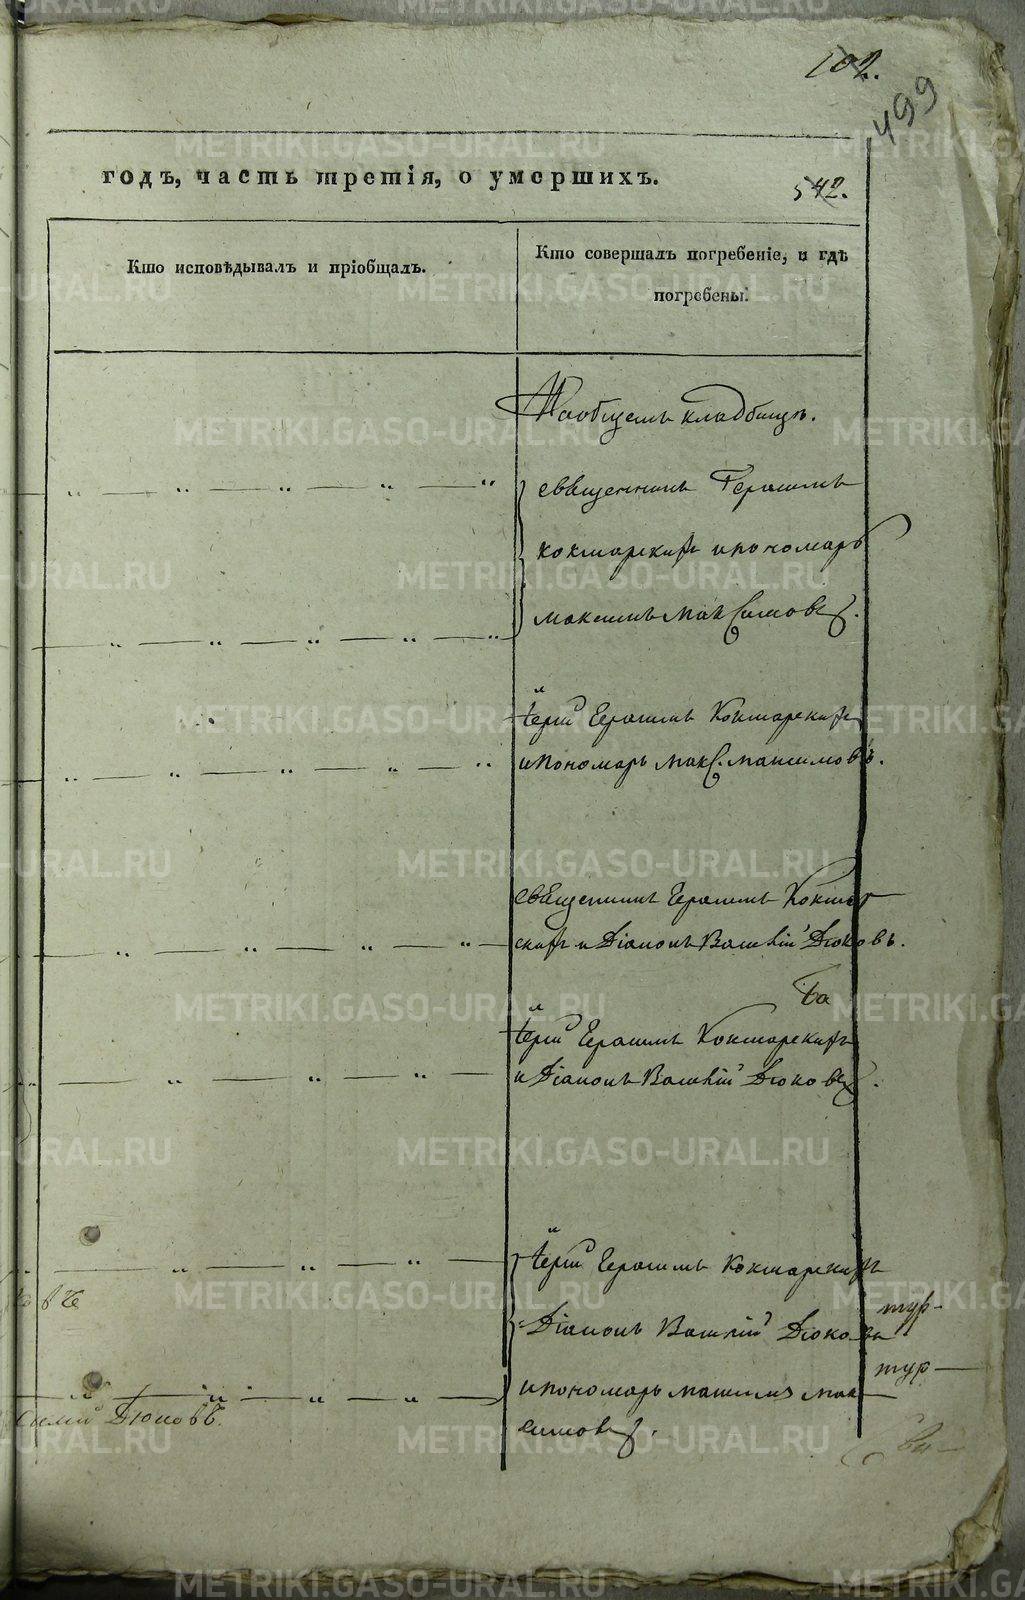 102.
499
годъ, часть третія, о умершихъ.
542.
Кто исповѣдывалъ и пріобщалъ.
Кто совершалъ погребеніе, и гдѣ
погребены.
На общемъ кладбищѣ.
священникъ Герасимъ
Кокшарскій и пономарь
Максимъ Максимовъ.
Іерей Герасимъ Кокшарскій
и пономарь Макс. Максимовъ.
священникъ Герасимъ Кокшар
скій и Діаконъ Василій Дюковъ.
Іерей Герасимъ Кокшарскій
и Діаконъ Василій Дюковъ.
Іерей Герасимъ Кокшарскій
Діаконъ Василій Дюковъ
и пономарь Максимъ Мак
симовъ.
силій Дюковъ.
METRIKI.GASO-URAL.RU